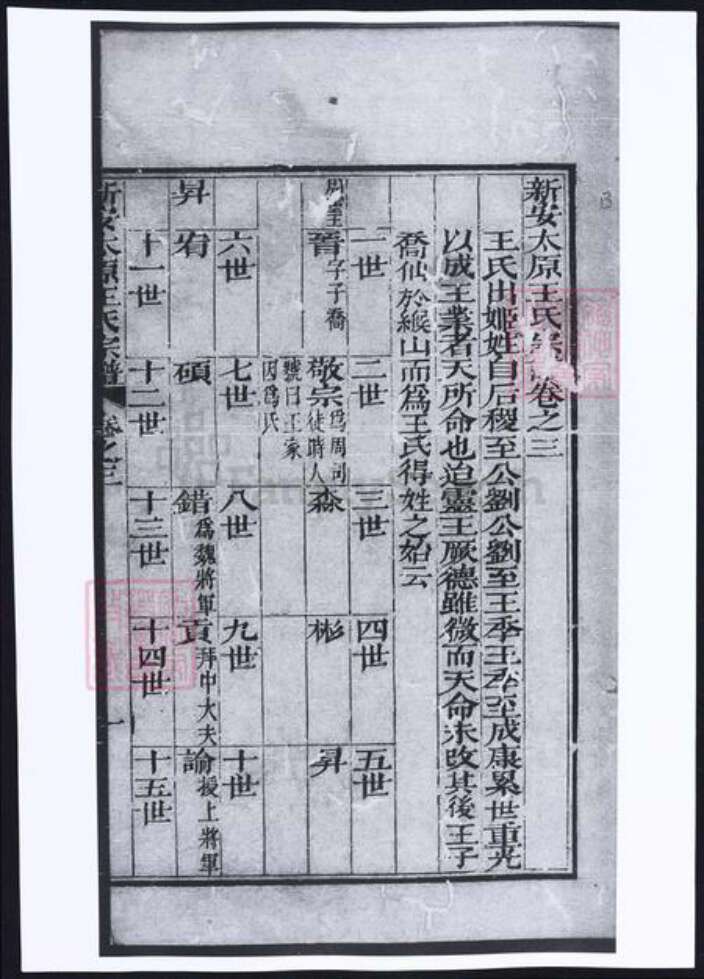 新安太原王氏宗譜卷之三
王氏出姬姓自后稷至公劉公劉至王季王季至成康累世重光
以成王業者天所命也迨靈王厥德雖微而天命未改其後王子
喬仙於緱山而為王氏得姓之始云
一世 二世 三世 四世 五世
周靈王 晉 字子喬 敬宗 為周司徒時人號曰王家因為氏 森 彬 昇
六世 七世 八世 九世 十世
昇 碩 錯 為魏將軍 賁 拜中大夫 論 援上將軍
十一世 十二世 十三世 十四世 十五世
新安太原王氏宗譜 卷之三 一